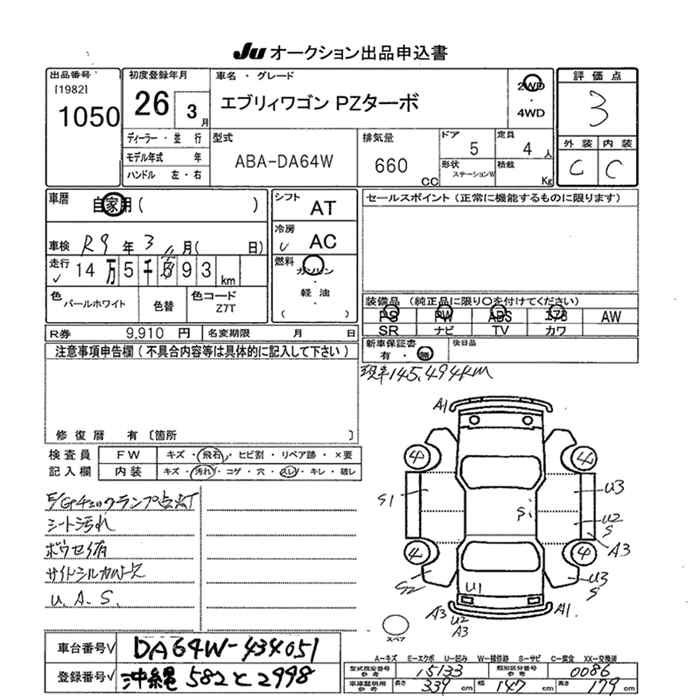 Ju オークション出品申込書
出品番号
[1982]
1050
初度登録年月
26 3月
車名・グレード
エブリィワゴン PZターボ
2WD
・
4WD
評価点
3
ディーラー・並行
モデル年式 年
ハンドル 左・右
型式
ABA-DA64W
排気量
660 CC
ドア
5
定員
4 人
形状
ステーションW
積載
Kg
外装 内装
C C
車歴
自家用 ( )
車検 R9 年 3 月( 日)
走行
14万5千 93 km
シフト
AT
冷房
AC
燃料
ガソリン
・
軽油
・
( )
セールスポイント (正常に機能するものに限ります)
色
パールホワイト
色替
色コード
Z7T
装備品 (純正品に限り○を付けてください)
PS PW ABS エアB AW
SR ナビ TV カワ
R券 9,910 円 名変期限 月 日
新車保証書
有・無
後日品
注意事項申告欄 (不具合内容等は具体的に記入して下さい)
現車145,494km
修復歴 有 〔箇所 〕
検査員
記入欄
FW キズ・飛石・ヒビ割・リペア跡・×要
内装 キズ・汚れ・コゲ・穴・スレ・キレ・破レ
E/Gチェックランプ点灯
シート汚れ
サイドシルカバーキズ
U.A.S.
A1
4 4
S1
U3
S
U2
S
A3
4 4
S2
U3
S
U1
A3
U2
A3
A1
スペア
A=キズ E=エクボ U=凹み W=補修跡 S=サビ C=腐食 XX=交換済
車台番号 DA64W-434051
登録番号 沖縄 582 と 2998
型式指定番号
参考
15133
類別区分番号
参考
0086
車庫証明用
参考
長さ 339 cm 幅 147 cm 高さ 179 cm